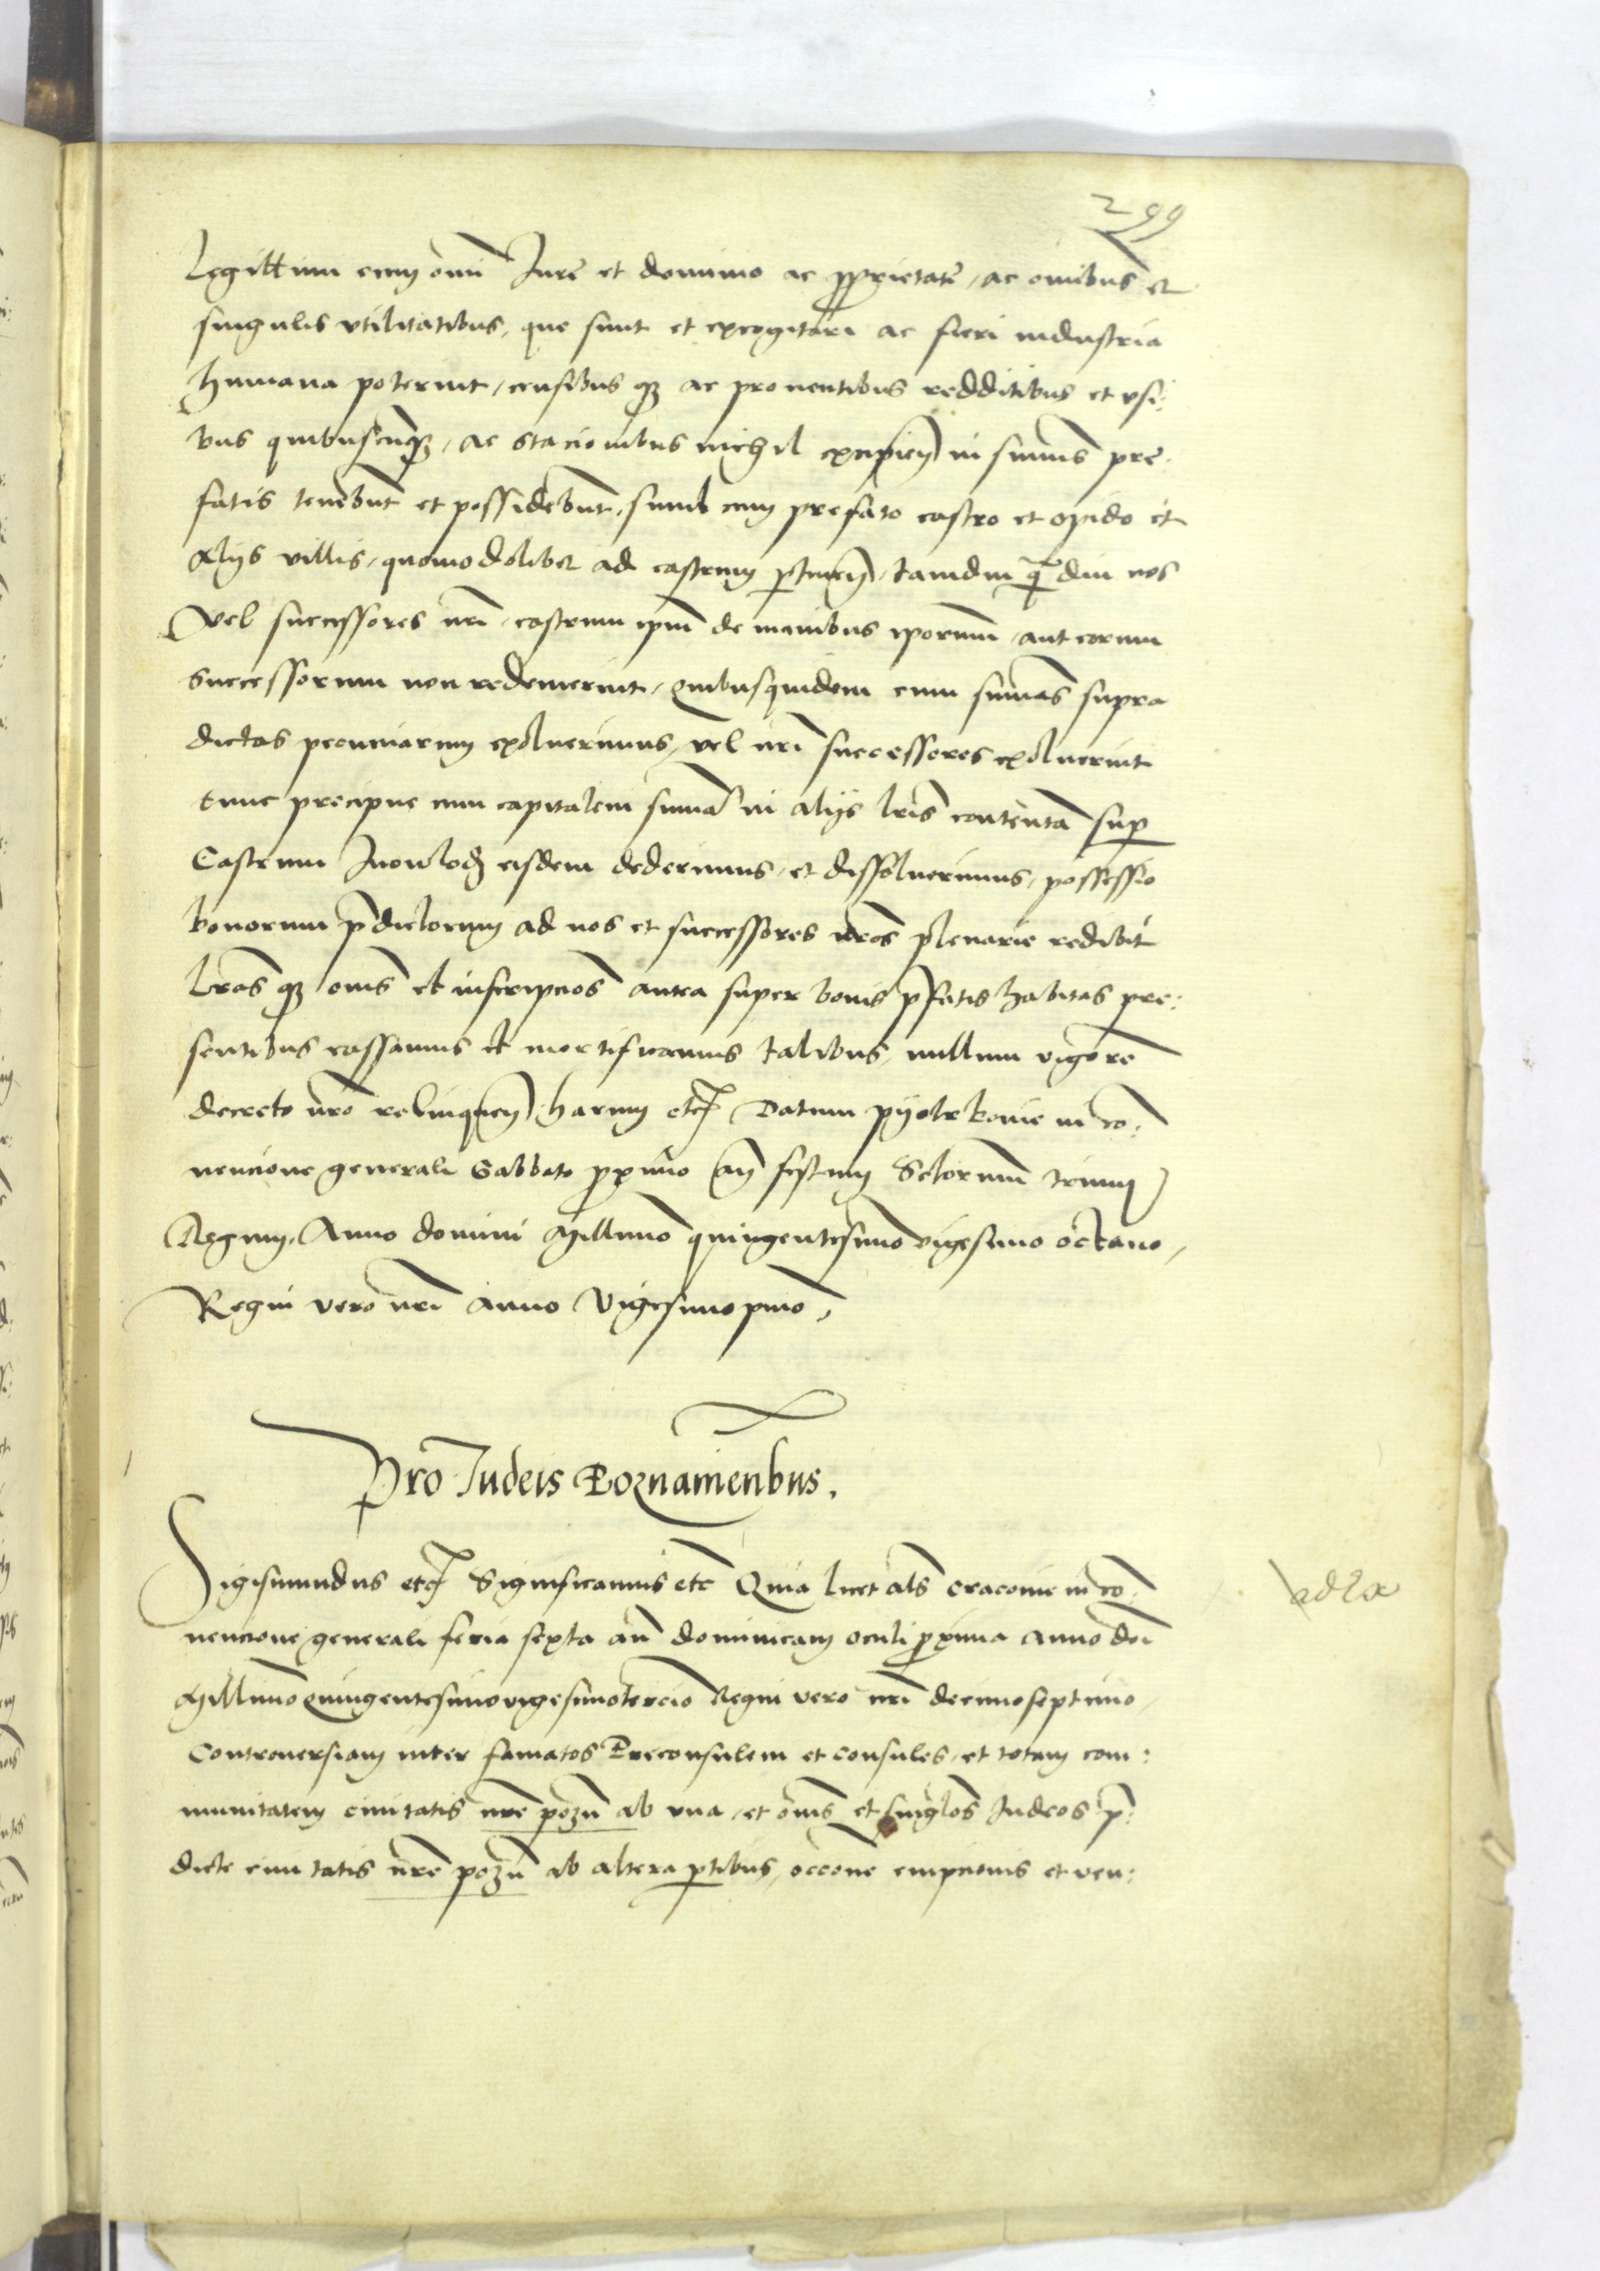 299
legittimi cum omi Jure et dominio ac pprietate, ac omibus et
singulis vtilitatibus, que sunt et excogitari ac fieri industria
humana poterint, censibus qz ac prouentibus redditibus et vsi:
bus quibuscunqz, ac stacionibus nichil excipien in sumis pre:
fatis tenebunt et possidebunt, simul cum prefato castro et opido et
alijs villis, quomodolibet ad castrum ptinen, tamdiu q diu nos
vel successores nri, castrum ipm de manibus ipsorum, aut eorum
successorum non redemerint, quibusquidem cum sumas supra
dictas pecuniarum exoluerimus, vel nri successores exoluerint
tunc precipue cum capitalem suma in alijs lris contenta sup
Castrum Inowlodz eisdem dederimus, et dissoluerimus, possessio
bonorum pdictorum ad nos et successores nros plenarie redibit
lras qz oms et inscripcios antea super bonis pfatis habitas pre:
sentibus cassamus et mortificamus talibus, nullum vigore
decreto nro relinquen, harum etc Datum pyotrkouie in co:
nencione generali Sabbato pximo an festum Sctorum trium
Regum, Anno domini Millimo quingentesimo vigesimo octauo,
Regni vero nri anno Vigesimo pmo,
Pro Judeis Poznanienbus.
Sigismundus etc Significamus etc Quia licet als Cracouie in co:
nencione generali feria sexta an dominicam oculi pxima anno doi
Millimo Quingentesimovigesimotercio Regni vero nri decimoseptimo,
Controuersiam inter famatos Preconsulem et consules, et totam com:
munitatem ciuitatis nre pozn ab vna, et oms et singlos Judeos p:
dicte ciuitatis nre pozn ab altera ptibus, occone empcionis et ven: